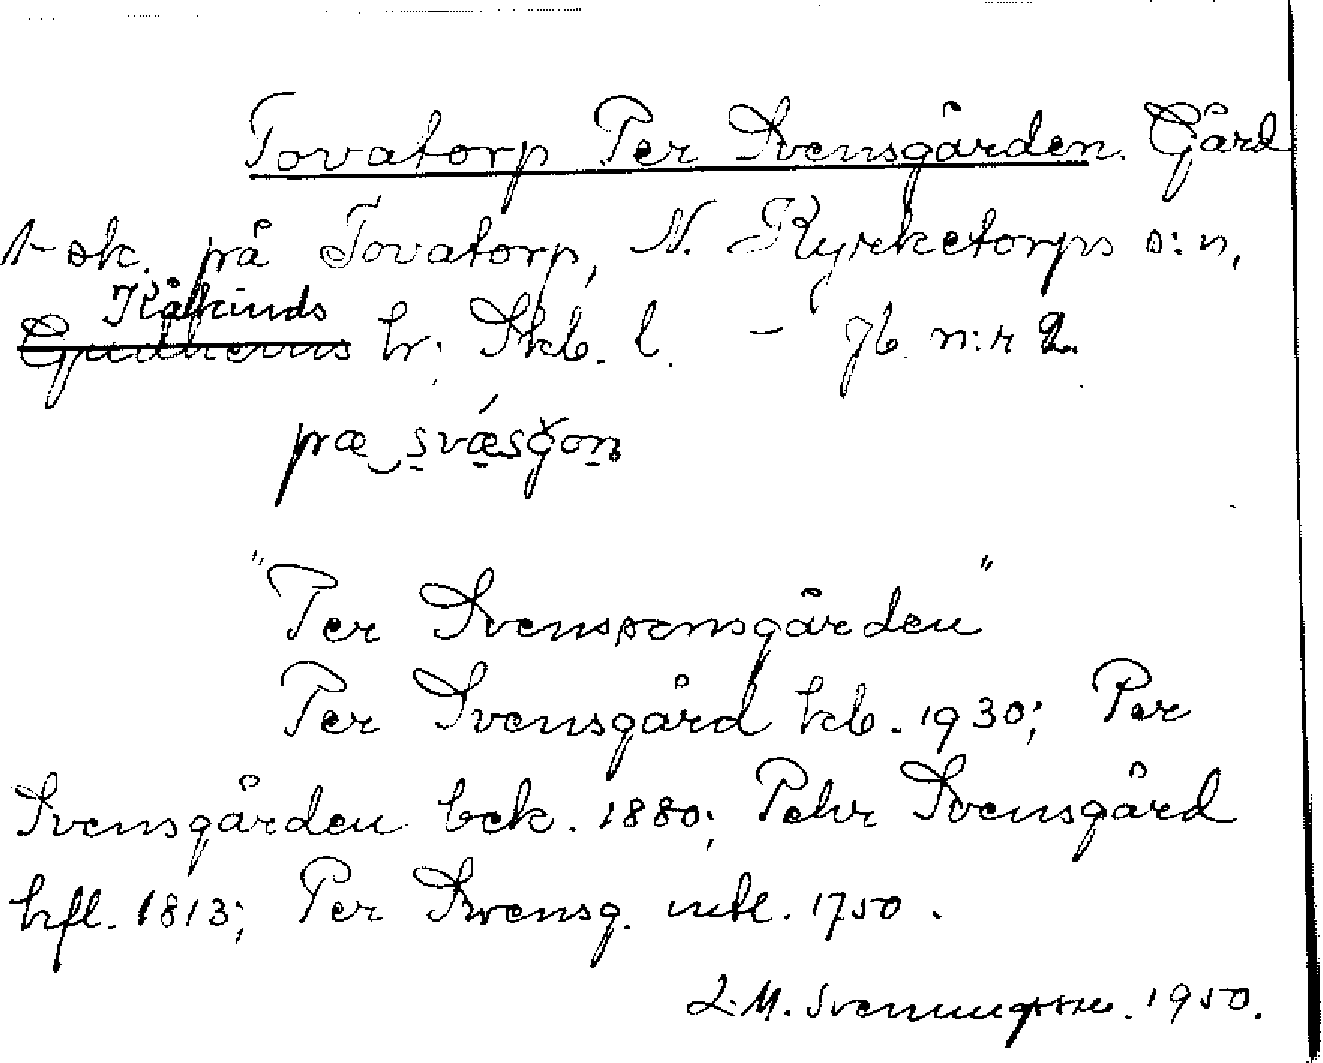 Tovatorp Per Svensgården. Gård
1-sk. på Tovatorp, N. Kyrketorps s:n,
Kåkinds
Gudhems hr. Skb. l. - Jb. n:r 2.
"Per Svenssonsgården"
Per Svensgård kb. 1930; Per
Svensgården bek. 1880; Pehr Svensgård
hfl. 1813; Per Svensg. mtl. 1750.
L. M. Svenungsson. 1950.